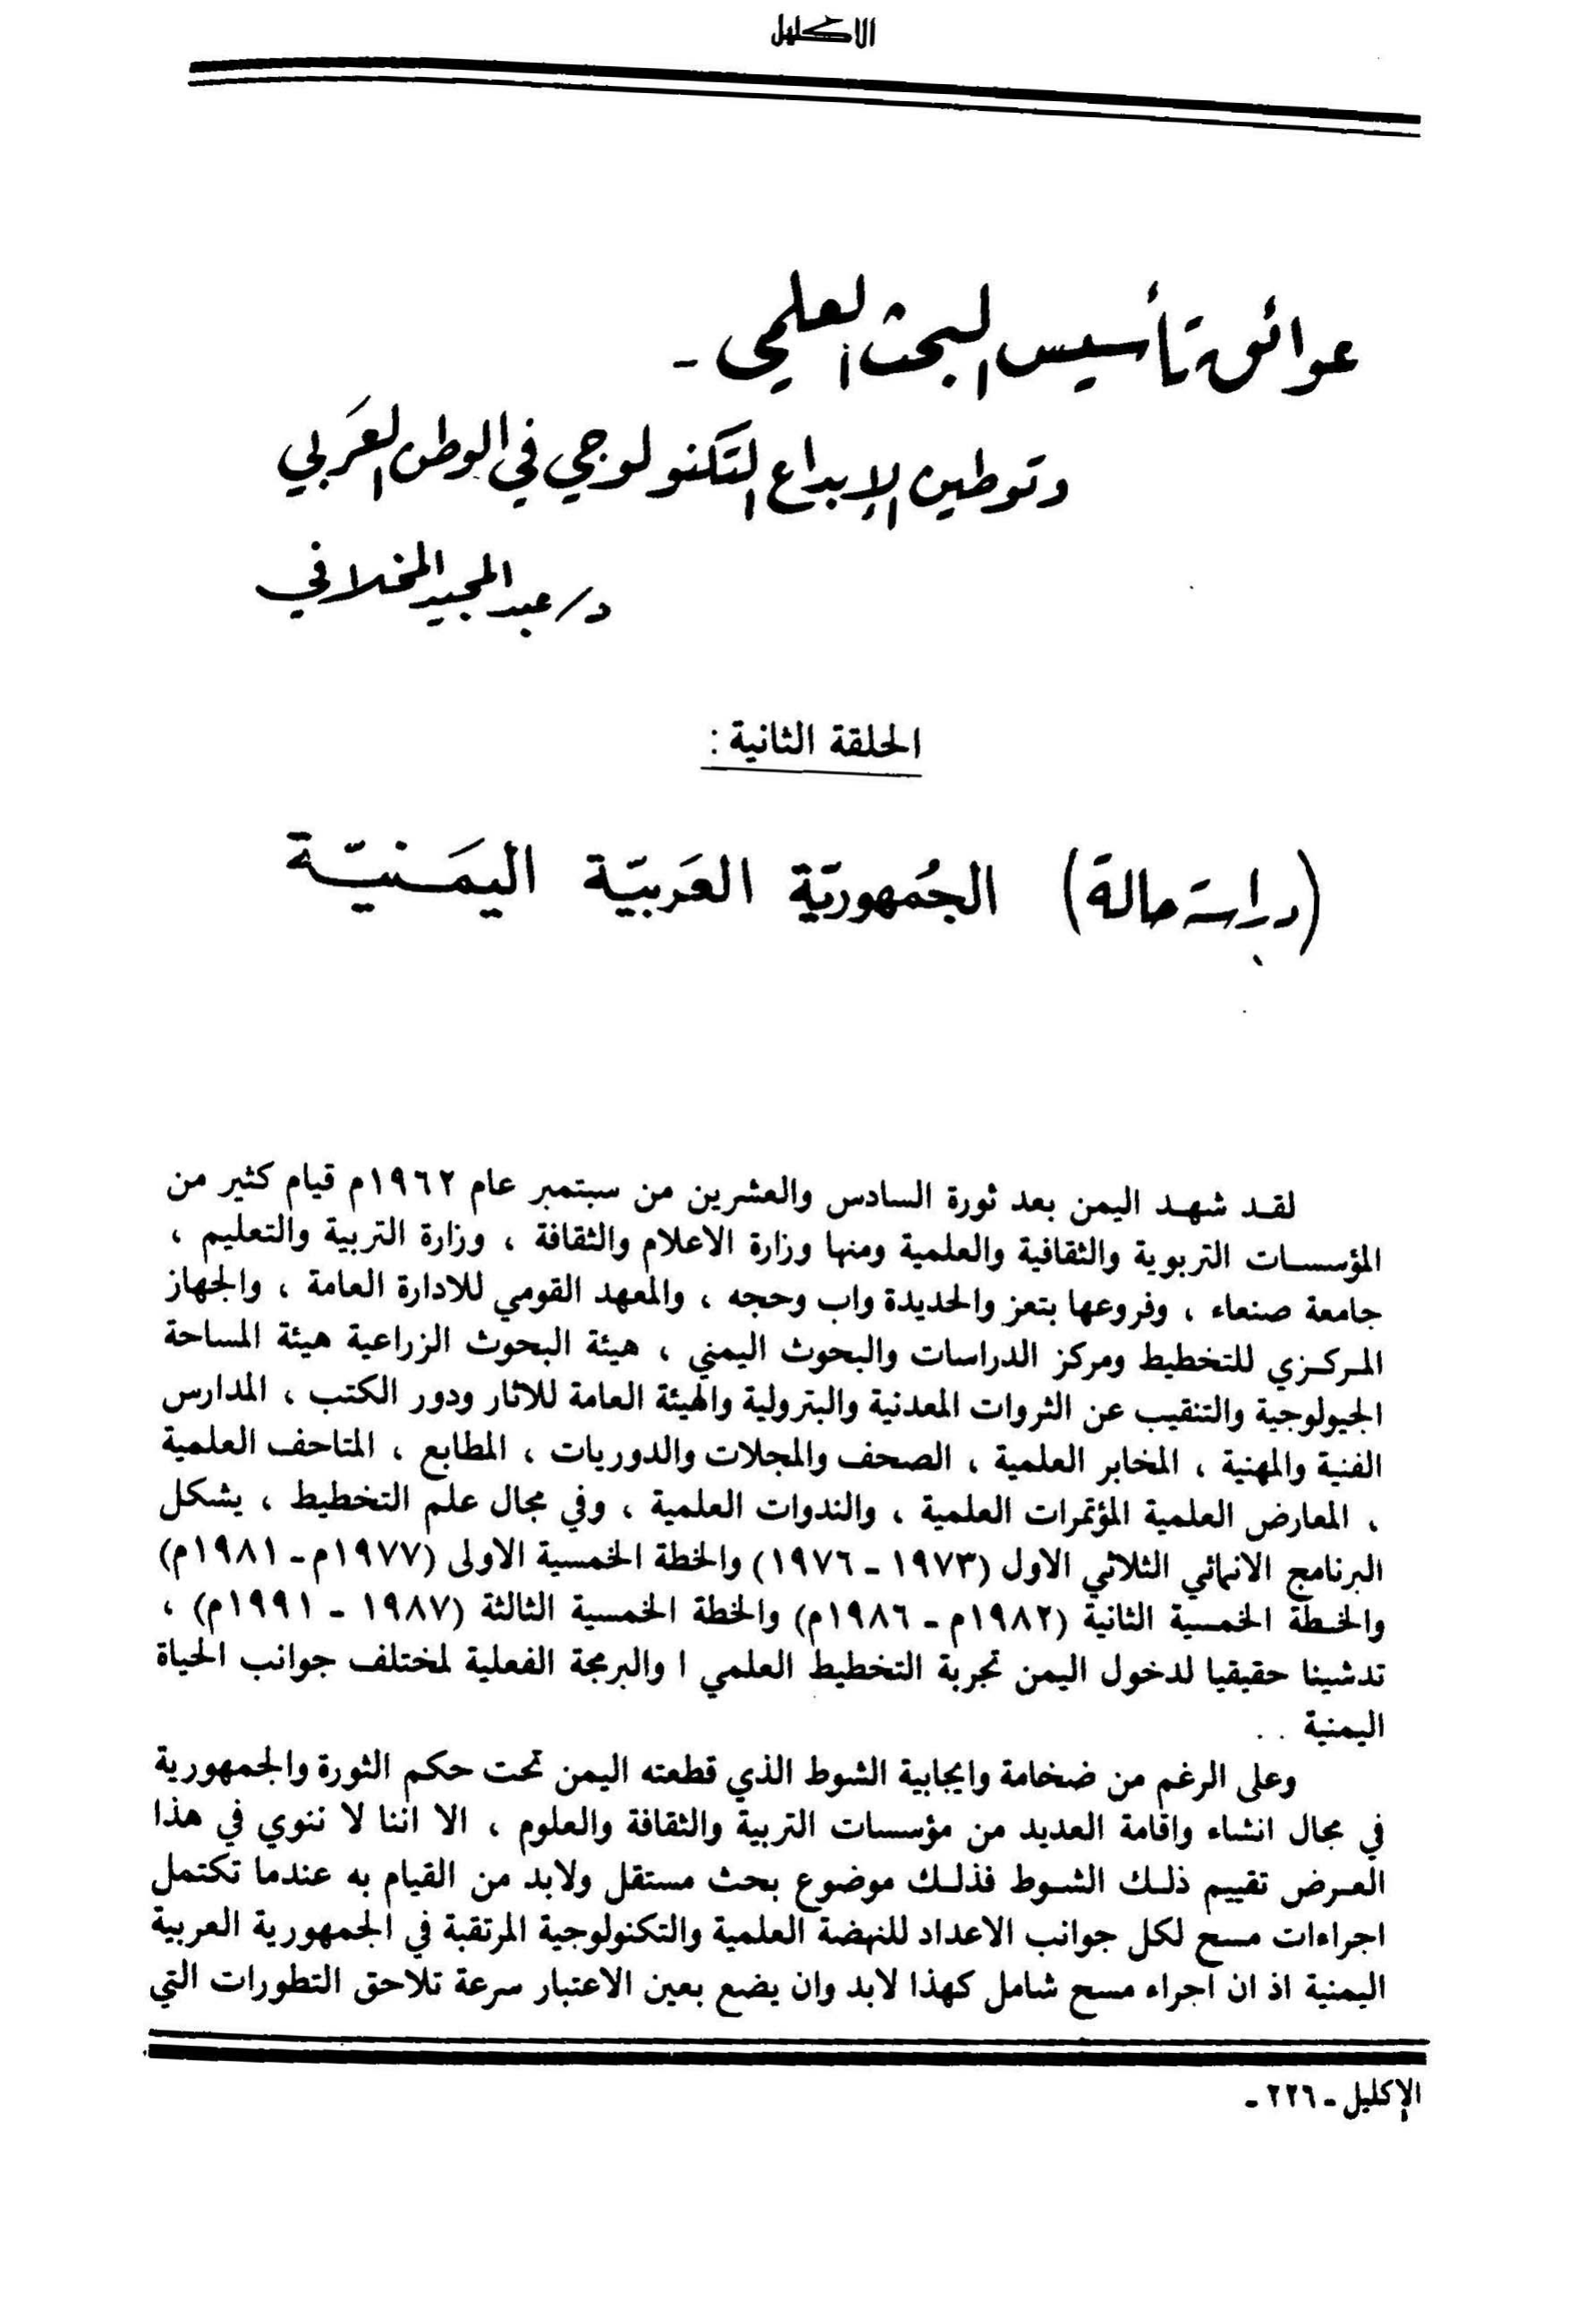 الاكليل
عوائق تأسيس البحث العلمي -
وتوطين الإبداع التكنولوجي في الوطن العَربي
د/ عبد المجيد المخلافي
الحلقة الثانية :
(دراسة حالة) الجُمهوريّة العَربيّة اليمَنيّة
لقد شهد اليمن بعد ثورة السادس والعشرين من سبتمبر عام ١٩٦٢م قيام كثير من
المؤسسات التربوية والثقافية والعلمية ومنها وزارة الاعلام والثقافة ، وزارة التربية والتعليم ،
جامعة صنعاء ، وفروعها بتعز والحديدة واب وحجه ، والمعهد القومي للادارة العامة ، والجهاز
المركزي للتخطيط ومركز الدراسات والبحوث اليمني ، هيئة البحوث الزراعية هيئة المساحة
الجيولوجية والتنقيب عن الثروات المعدنية والبترولية والهيئة العامة للاثار ودور الكتب ، المدارس
الفنية والمهنية ، المخابر العلمية ، الصحف والمجلات والدوريات ، المطابع ، المتاحف العلمية
، المعارض العلمية المؤتمرات العلمية ، والندوات العلمية ، وفي مجال علم التخطيط ، يشكل
البرنامج الانمائي الثلاثي الاول (١٩٧٣ - ١٩٧٦) والخطة الخمسية الاولى (١٩٧٧م - ١٩٨١م)
والخطة الخمسية الثانية (١٩٨٢م - ١٩٨٦م) والخطة الخمسية الثالثة (١٩٨٧ - ١٩٩١م) ،
تدشينا حقيقيا لدخول اليمن تجربة التخطيط العلمي ا والبرمجة الفعلية لمختلف جوانب الحياة
اليمنية . .
وعلى الرغم من ضخامة وايجابية الشوط الذي قطعته اليمن تحت حكم الثورة والجمهورية
في مجال انشاء واقامة العديد من مؤسسات التربية والثقافة والعلوم ، الا اننا لا ننوي في هذا
العرض تقييم ذلك الشوط فذلك موضوع بحث مستقل ولابد من القيام به عندما تكتمل
اجراءات مسح لكل جوانب الاعداد للنهضة العلمية والتكنولوجية المرتقبة في الجمهورية العربية
اليمنية اذ ان اجراء مسح شامل كهذا لابد وان يضع بعين الاعتبار سرعة تلاحق التطورات التي
الإكليل - ٢٢٦ -